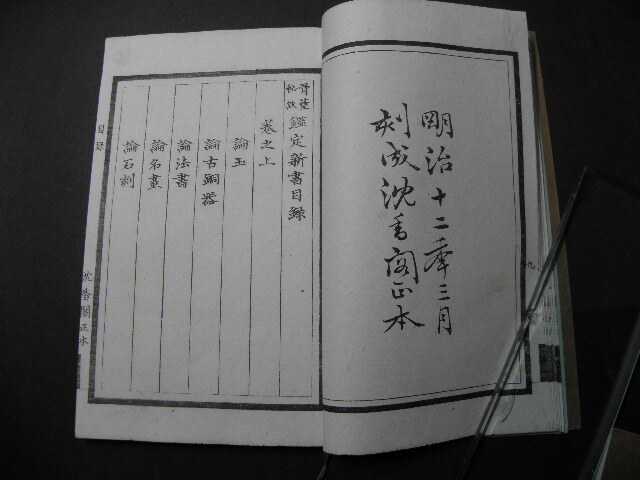 明治十二年三月
刻成沈香閣正本
骨董秘訣鑑定新書目録
巻之上
論玉
論古銅器
論法書
論名畫
論石刻
目録
沈香閣正本